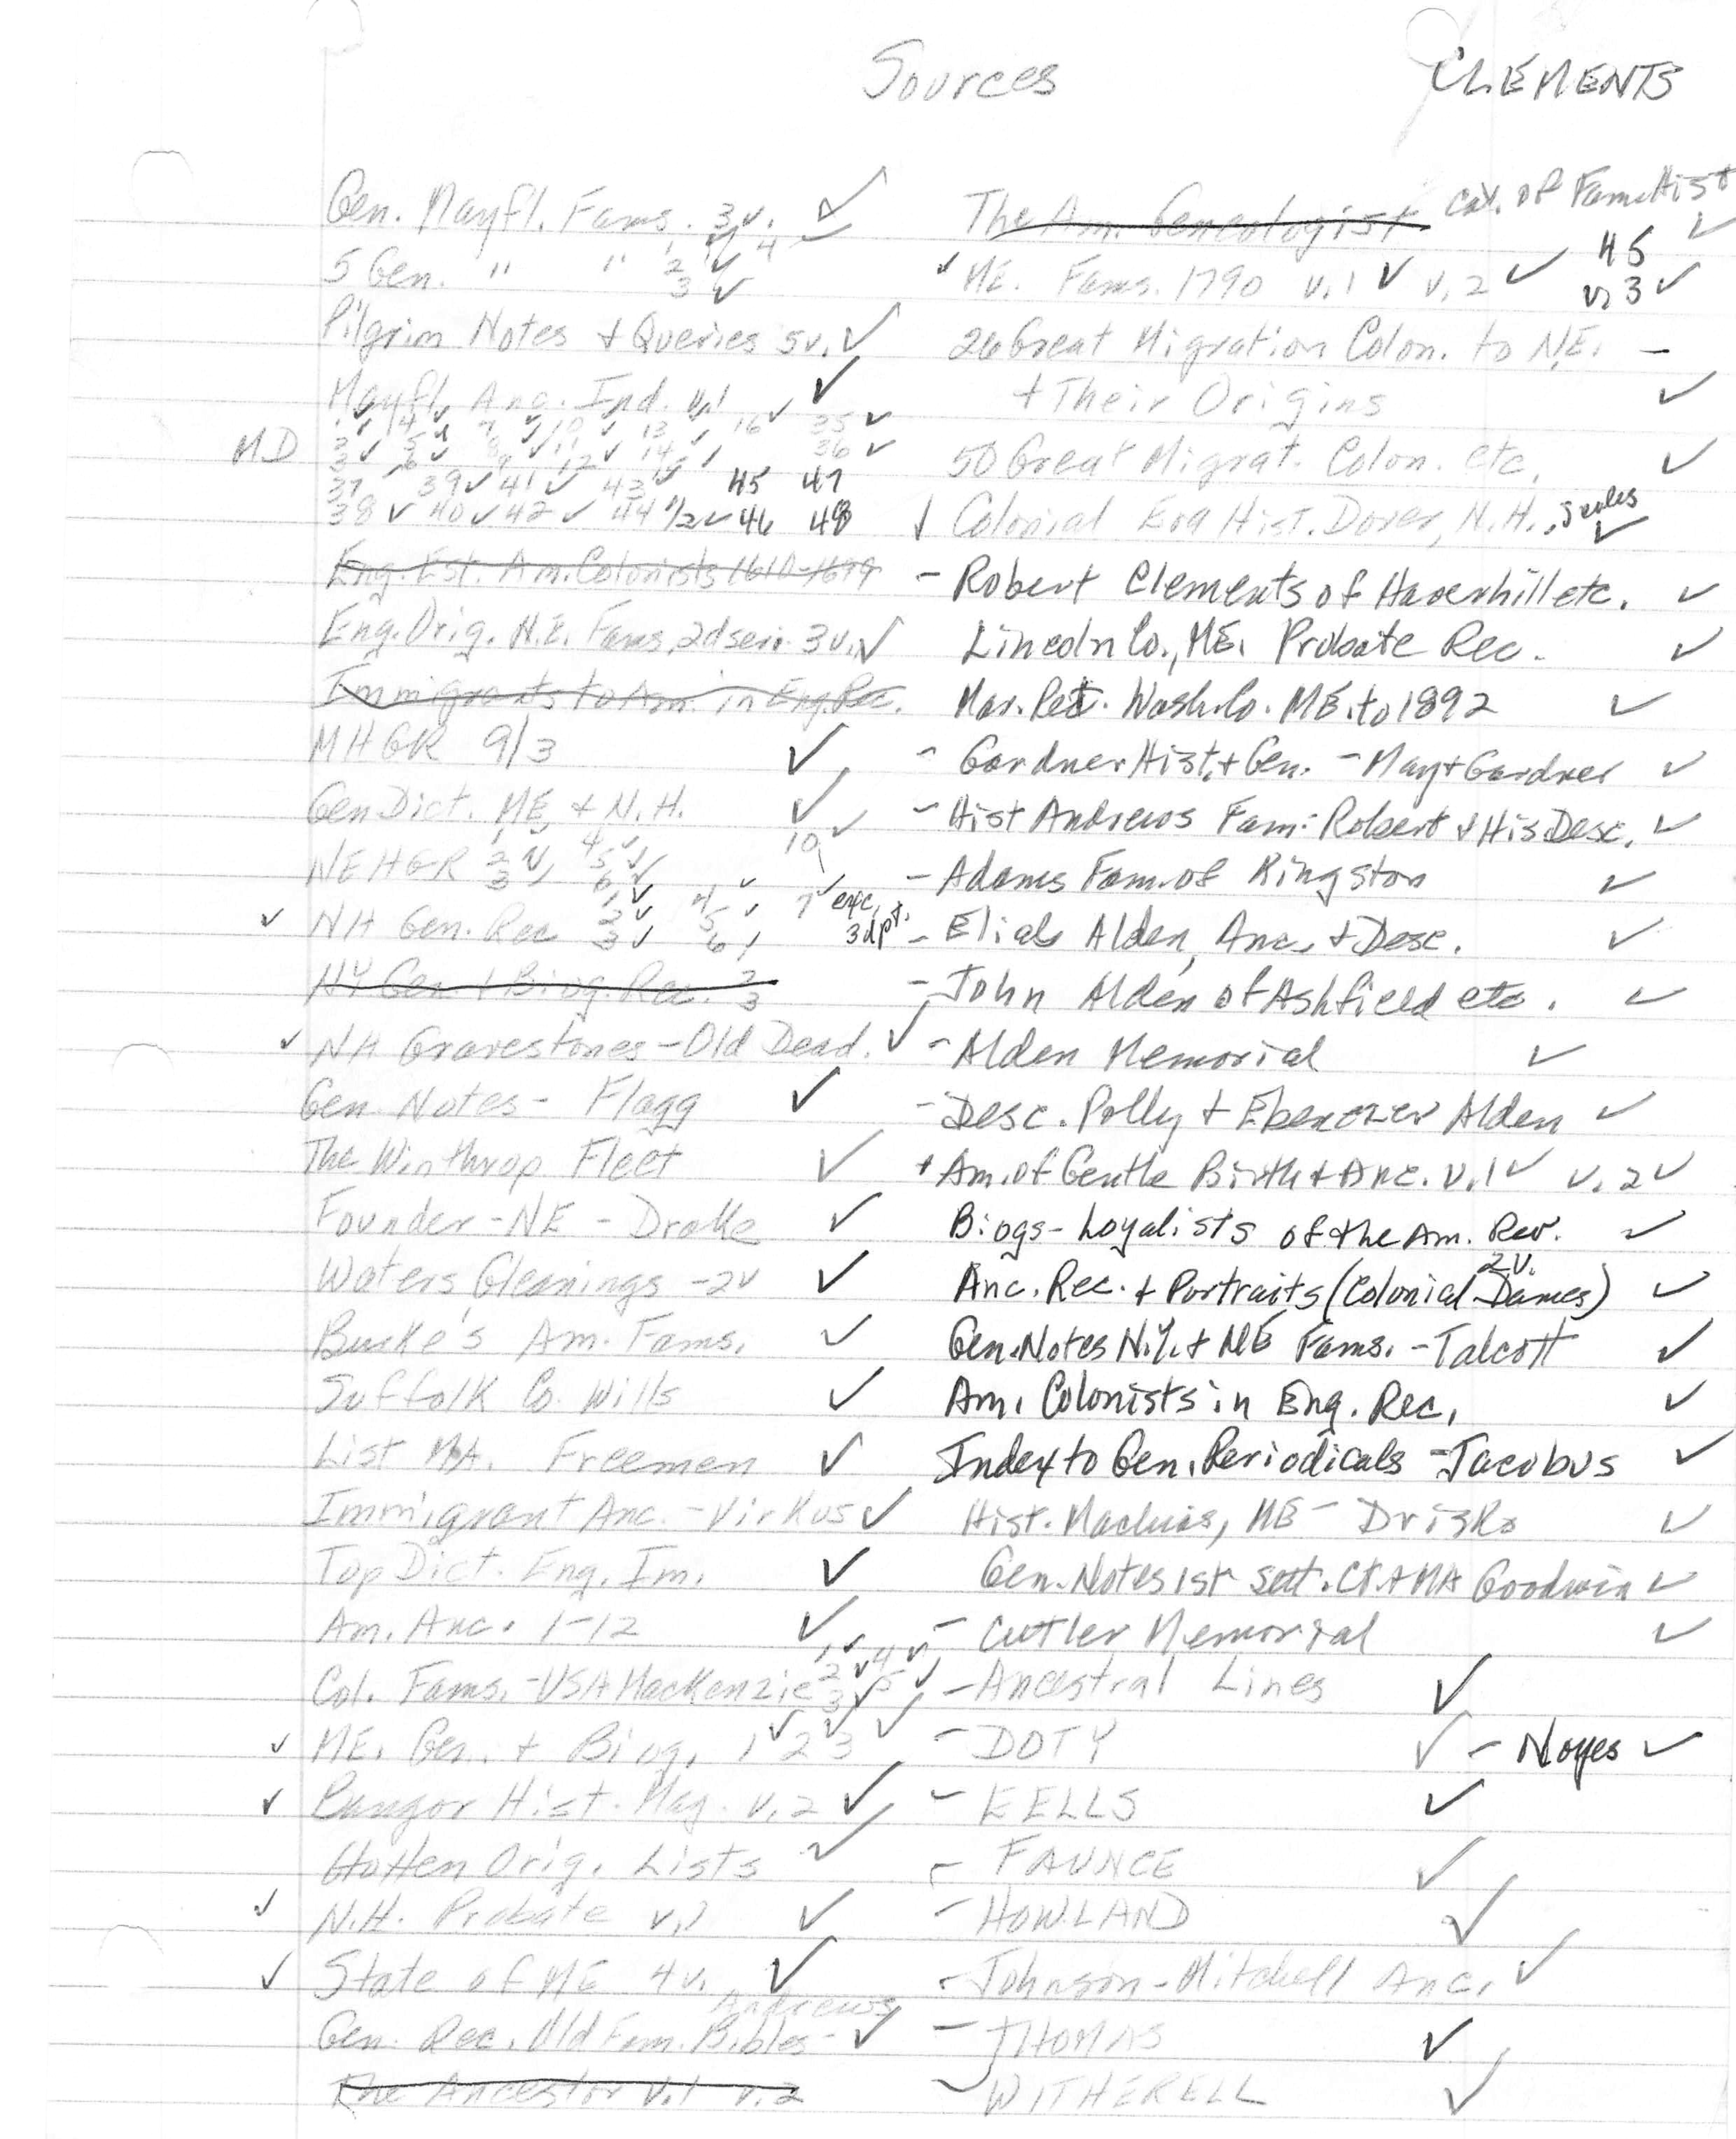 Sources
CLEMENTS
Gen. Mayfl. Fams. 3v. ✓
5 Gen. " " 1 2 ✓ 3 ✓ 4 ✓
Pilgrim Notes + Queries 5v. ✓
Mayfl. Anc. Ind. v.1 ✓
MD
37 39 ✓ 41 ✓ 43 ✓ 45 47
38 ✓ 40 ✓ 42 ✓ 44 1/2 ✓ 46 48
Eng. Est. Am. Colonists 1610-1699
Eng. Orig. N.E. Fams, 2d seri. 3v. ✓
Immigrants to Am. in Eng. Rec.
MHGR 9/3 ✓
Gen Dict. ME, + N.H. ✓
NEHGR 1 2 ✓ 3 4 ✓ 5 ✓ 6 ✓ 10 ✓
✓ NH Gen. Rec 1 ✓ 2 ✓ 3 ✓ 4 ✓ 5 ✓ 6 ✓ 7 ✓ exc. 3d pt.
NY Gen + Biog. Rec. 2 3
✓ NH Gravestones - Old Dead. ✓
Gen. Notes - Flagg ✓
The Winthrop Fleet ✓
Founder - NE - Drake ✓
Waters Gleanings - 2v ✓
Burke's Am. Fams. ✓
Suffolk Co. Wills ✓
List MA. Freemen ✓
Immigrant Anc. - Virkus ✓
Top Dict. Eng. Im. ✓
Am. Anc. 1-12 ✓
Col. Fams. - USA MacKenzie 1 ✓ 2 ✓ 3 ✓ 4 ✓ 5 ✓
✓ ME. Gen. + Biog. 1 ✓ 2 ✓ 3 ✓
✓ Bangor Hist. Mag. v.2 ✓
Hotten Orig. Lists ✓
✓ N.H. Probate v.1 ✓
✓ State of ME 4v. ✓
Andrews
Gen. Rec. Old Fam. Bibles - ✓
The Ancestor v.1 v.2
The Am. Genealogist Cat. of Fam. Hist ✓
45
✓ ME. Fams. 1790 v.1 ✓ v.2 ✓ v. 3 ✓
26 Great Migration Colon. to N.E. -
+ Their Origins ✓
50 Great Migrat. Colon. etc. ✓
✓ Colonial Era Hist. Dover, N.H., Scales ✓
- Robert Clements of Haverhill etc. ✓
Lincoln Co., ME. Probate Rec. ✓
Mar. Ret. Wash. Co. ME. to 1892 ✓
- Gardner Hist. + Gen. - May + Gardner ✓
- Hist Andrews Fam: Robert + His Desc. ✓
- Adams Fam. of Kingston ✓
- Eliab Alden, Anc. + Desc. ✓
- John Alden of Ashfield etc. ✓
- Alden Memorial ✓
- Desc. Polly + Ebenezer Alden ✓
+ Am. of Gentle Birth + Anc. v.1 ✓ v. 2 ✓
Biogs - Loyalists of the Am. Rev. ✓
2v.
Anc. Rec. + Portraits (Colonial Dames) ✓
Gen. Notes N.Y. + NE Fams. - Talcott ✓
Am. Colonists in Eng. Rec. ✓
Index to Gen. Periodicals - Jacobus ✓
Hist. Machias, ME - Drisko ✓
Gen. Notes 1st Sett. Ct. + MA Goodwin ✓
- Cutler Memorial ✓
- Ancestral Lines ✓
- DOTY ✓ - Noyes ✓
- EELLS ✓
- FAUNCE ✓
- HOWLAND ✓
- Johnson - Mitchell Anc. ✓
- THOMAS ✓
- WITHERELL ✓